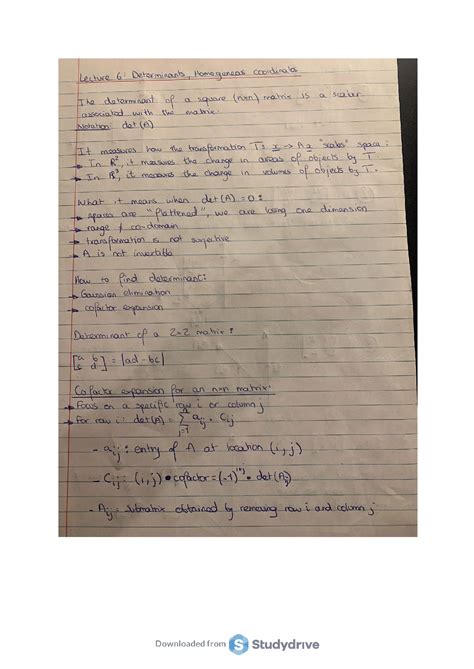 Lecture 6: Determinants, Homogeneous coordinates
The determinant of a square (n×n) matrix is a scalar
associated with the matrix.
Notation: det(A)
It measures how the transformation T: x → Ax "scales" space:
→ In R², it measures the change in areas of objects by T.
→ In R³, it measures the change in volumes of objects by T.
What it means when det(A) = 0:
→ spaces are "flattened", we are losing one dimension
→ range ≠ co-domain
→ transformation is not surjective
→ A is not invertible
How to find determinant:
→ Gaussian elimination
→ cofactor expansion
Determinant of a 2×2 matrix:
[a b
c d] = |ad - bc|
Cofactor expansion for an n×n matrix:
→ Focus on a specific row i or column j
→ For row i: det(A) = Σ j=1 n aij · Cij
- aij: entry of A at location (i, j)
- Cij: (i, j) • cofactor = (-1)^i+j • det(Aij)
- Aij = submatrix obtained by removing row i and column j
Downloaded from S Studydrive